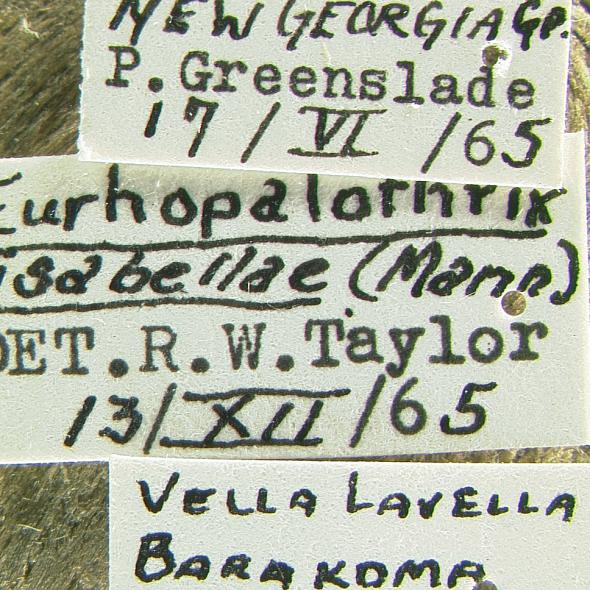 NEW GEORGIA GP.
P. Greenslade
17 / VI / 65
Eurhopalothrix
isabellae (Mann)
DET. R. W. Taylor
13 / XII / 65
VELLA LAVELLA
BARAKOMA